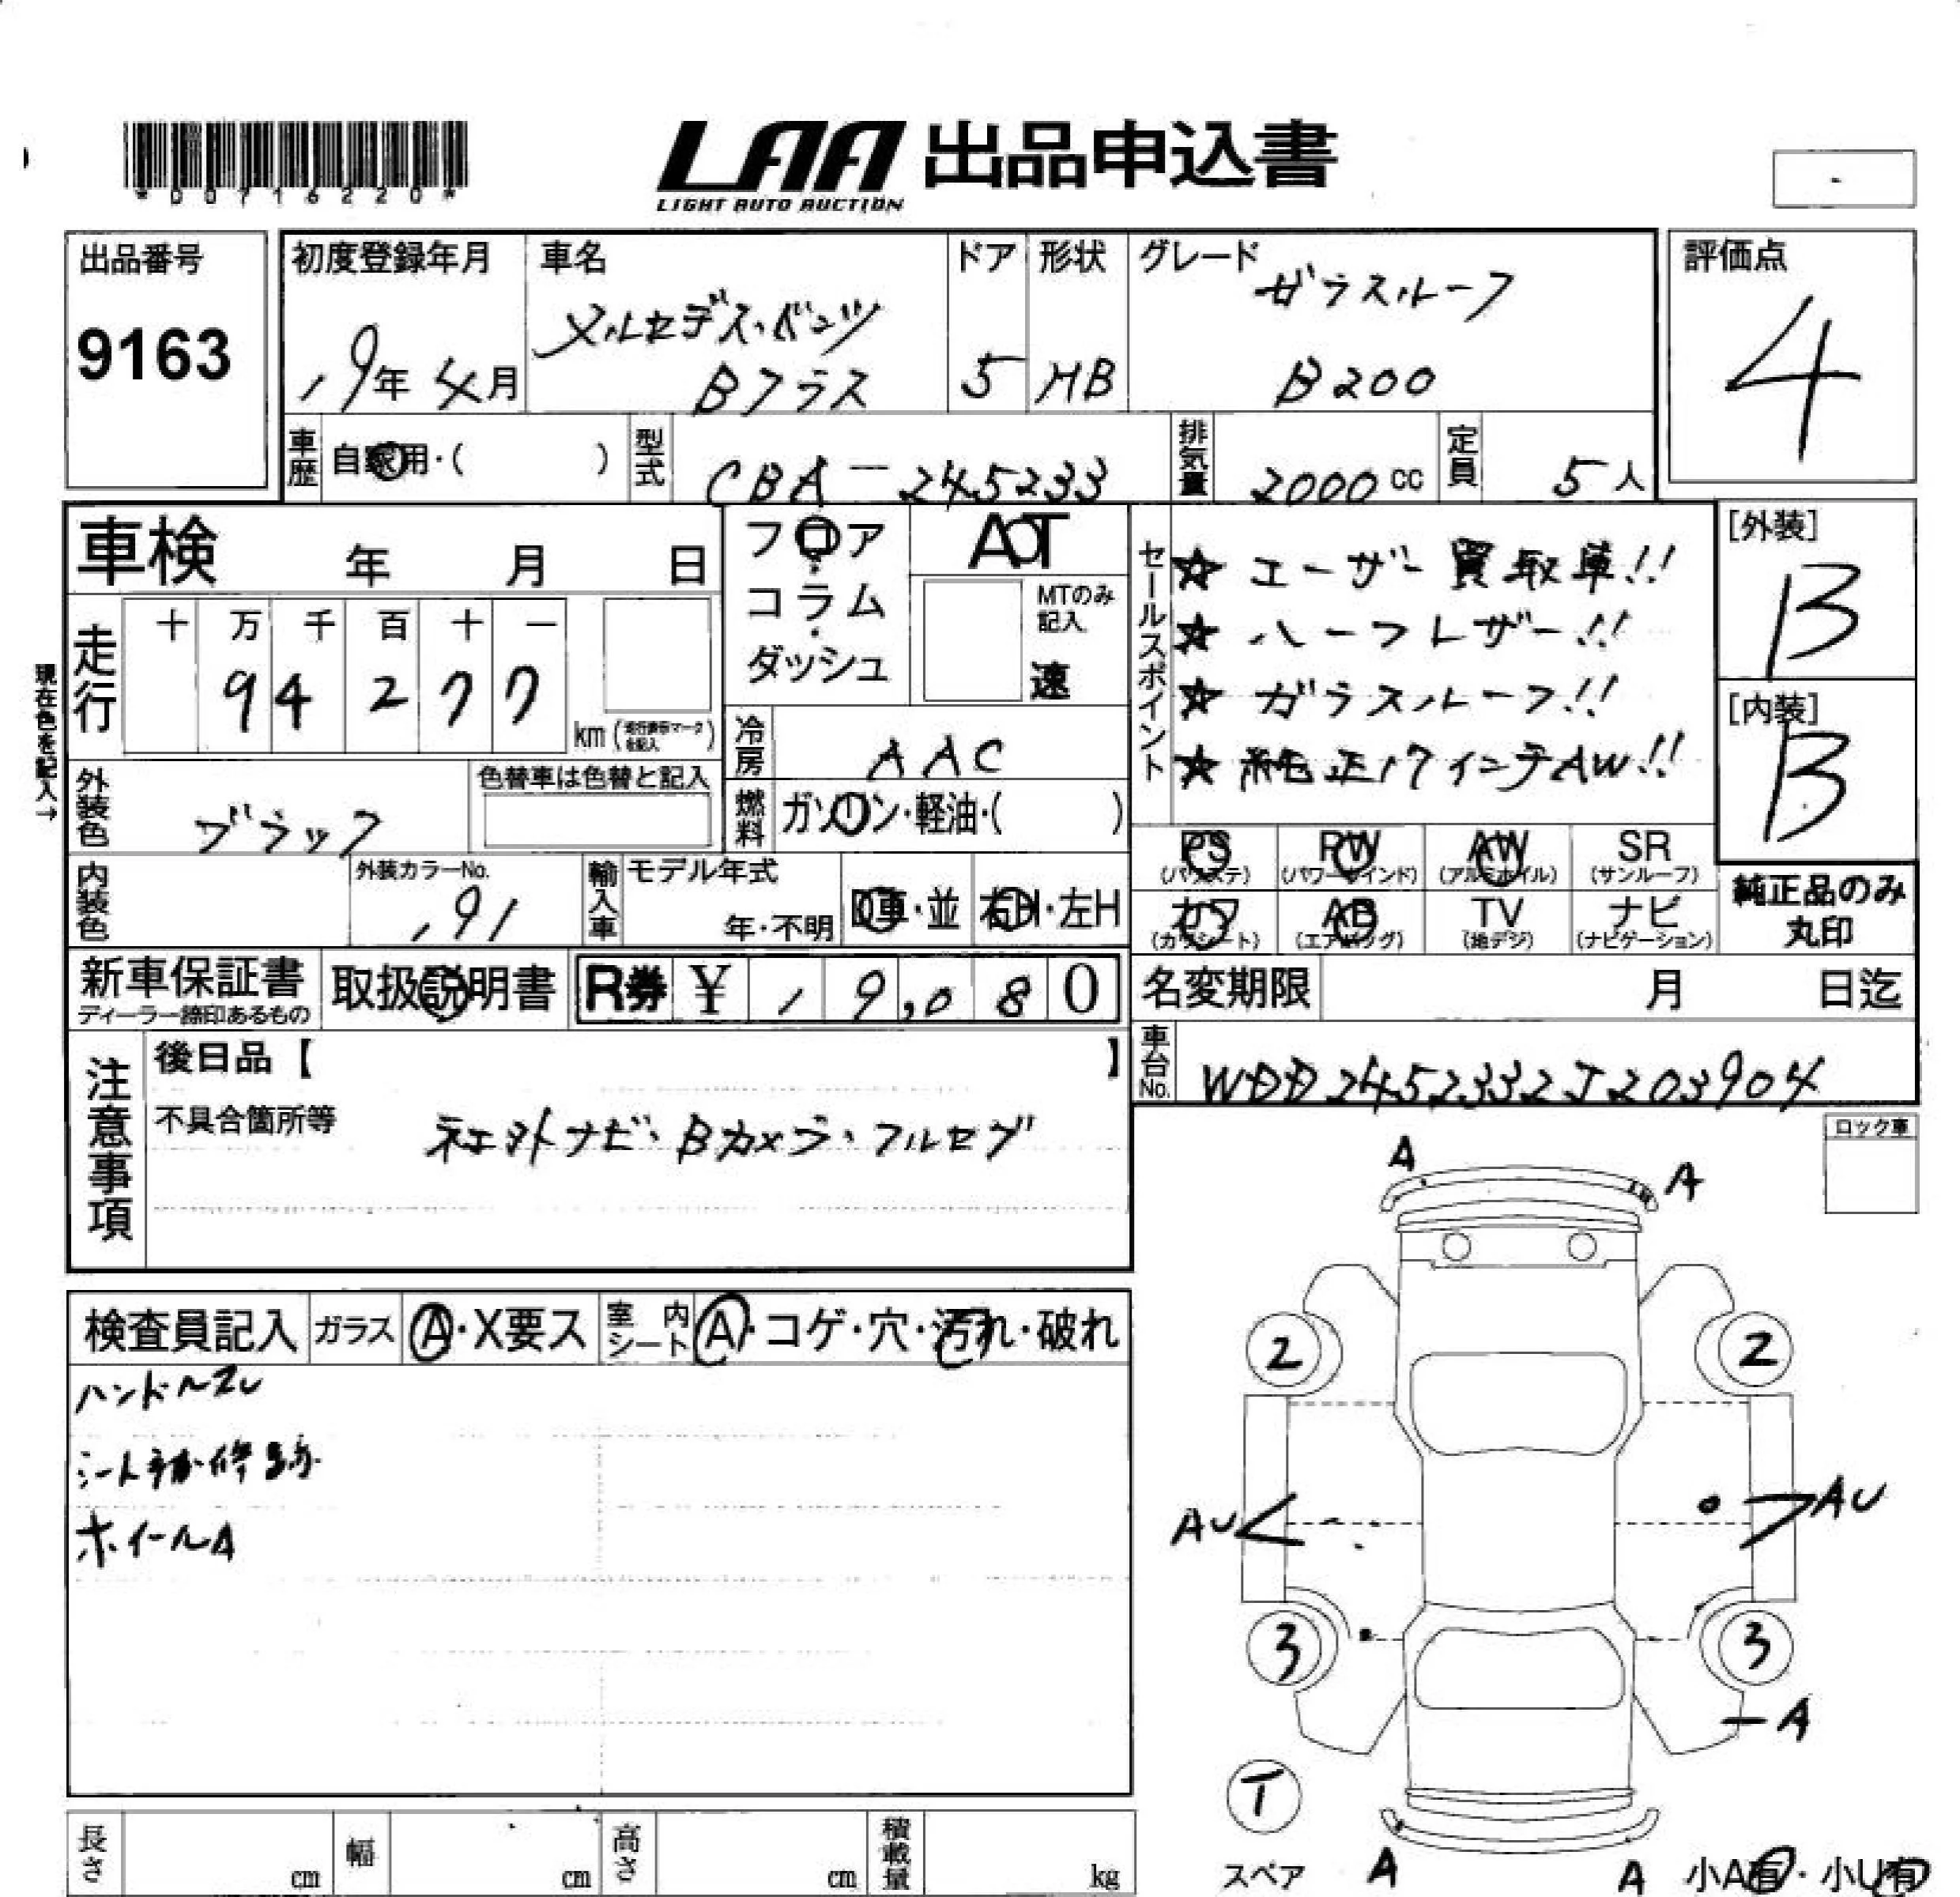 *00716220*
LAA 出品申込書
LIGHT AUTO AUCTION
-
出品番号
9163
初度登録年月
19年 4月
車名
メルセデス・ベンツ
Bクラス
ドア
5
形状
HB
グレード
ガラスルーフ
B200
評価点
4
車歴
自家用・( )
型式
CBA-245233
排気量
2000 cc
定員
5 人
車検 年 月 日
フロア
コラム
ダッシュ
AT
MTのみ記入
速
セールスポイント
☆ ユーザー買取車!!
☆ ハーフレザー!!
☆ ガラスルーフ!!
☆ 純正17インチAW!!
[外装]
B
[内装]
B
走行
十 万 千 百 十 一
9 4 2 7 7
km
現在色を記入→
冷房
AAC
外装色
ブラック
色替車は色替と記入
燃料
ガソリン・軽油・( )
内装色
外装カラーNo.
191
輸入車
モデル年式
年・不明
D車・並
右H・左H
PS
(パワステ)
PW
(パワーウインド)
AW
(アルミホイル)
SR
(サンルーフ)
カワ
(カワシート)
AB
(エアバッグ)
TV
(地デジ)
ナビ
(ナビゲーション)
純正品のみ
丸印
新車保証書
ディーラー捺印あるもの
取扱説明書
R券 ¥ 19,080
名変期限 月 日迄
車台No.
WDD2452332J203904
注意事項
後日品【 】
不具合箇所等
社外ナビ・Bカメラ・フルセグ
ロック車
検査員記入
ガラス
A・X要ス
室内シート
A・コゲ・穴・汚れ・破れ
ハンドルスレ
シート補修跡
ホイールA
A
A
2
2
AU
AU
3
3
A
T
スペア
A
A
小A有・小U有
長さ cm
幅 cm
高さ cm
積載量 kg